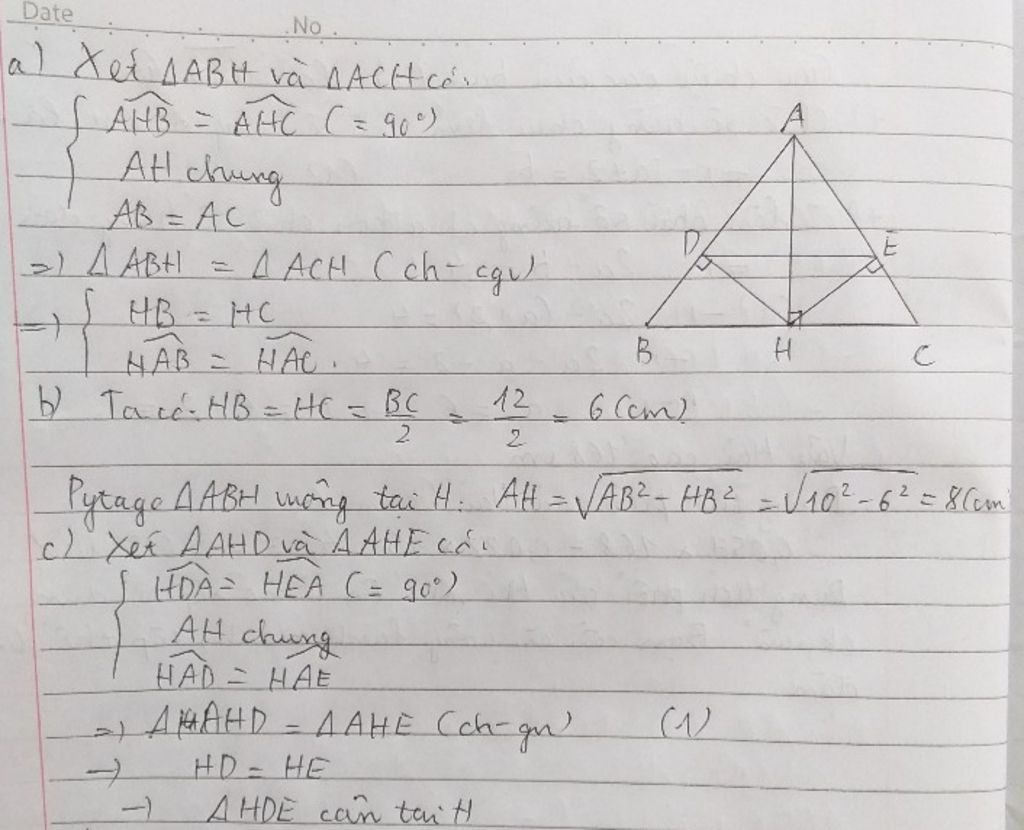 Date No
a) Xét ΔABH và ΔACH có.
{ \widehat{AHB} = \widehat{AHC} (= 90°)
AH chung
AB = AC
=) ΔABH = ΔACH (ch-cgv)
=) { HB = HC
\widehat{HAB} = \widehat{HAC}.
b) Ta có: HB = HC = BC/2 = 12/2 = 6 (cm)
Pytago ΔABH vuông tại H: AH = √(AB² - HB²) = √(10² - 6²) = 8 (cm
c) Xét ΔAHD và ΔAHE có.
{ \widehat{HDA} = \widehat{HEA} (= 90°)
AH chung
\widehat{HAD} = \widehat{HAE}
=) ΔAHD = ΔAHE (ch-gn) (1)
→ HD = HE
→ ΔHDE cân tại H
A
D E
B H C